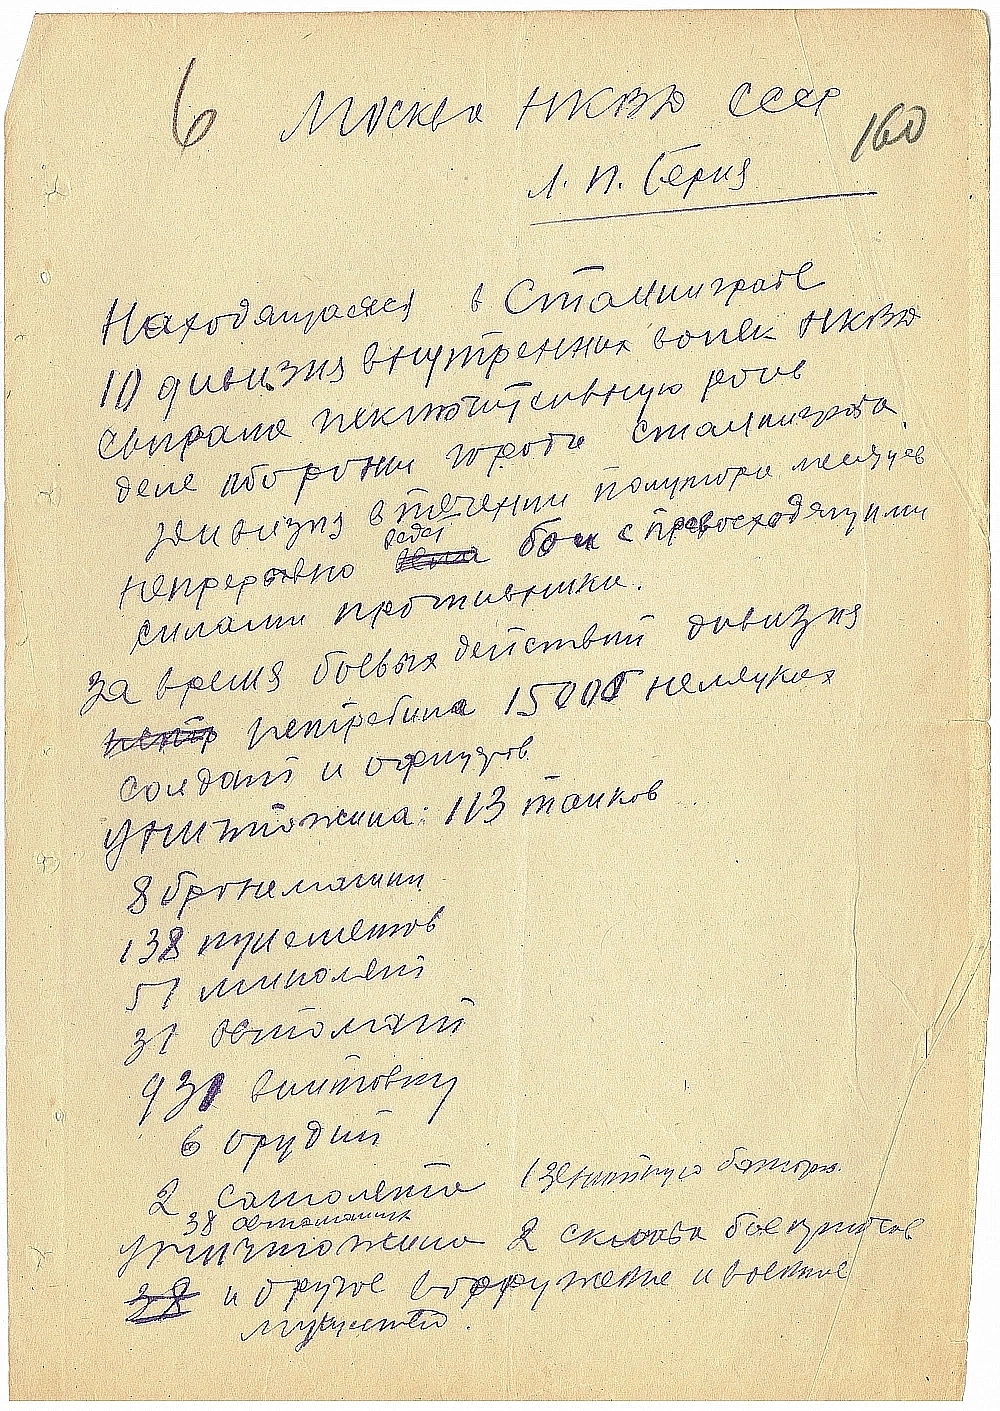 6
Москва НКВД СССР
160
Л. П. Берия
Находящаяся в Сталинграде
10 дивизия внутренних войск НКВД
сыграла исключительную роль
деле обороны города Сталинграда
дивизия в течении полутора месяцев
ведет
непрерывно бои с превосходящими
силами противника.
За время боевых действий дивизия
истр истребила 15000 немецких
солдат и офицеров
Уничтожила: 113 танков
8 бронемашин
138 пулеметов
51 миномет
31 автомат
931 винтовку
6 орудий
2 самолета 1 зенитную батарею
38 автомашин
Уничтожила 2 склада боеприпасов
38 и другое вооружение и военное
имущество.